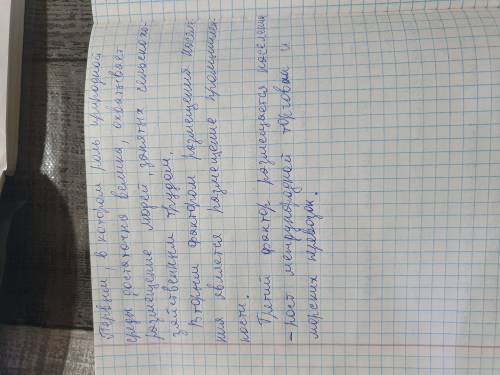 Первый, в котором роль природной
среды достаточно велика, охватывает
размещение людей, занятых сельскохо-
зяйственным трудом.
Вторым фактором размещения населе-
ния является размещение промышлен-
ности.
Третий фактор размещается населения
- рост международной торговли и
морских перевозок.